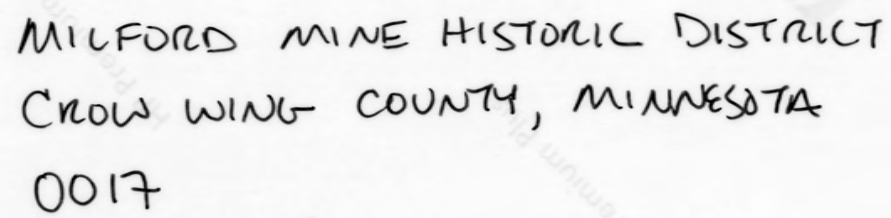 MILFORD MINE HISTORIC DISTRICT
CROW WING COUNTY, MINNESOTA
0017